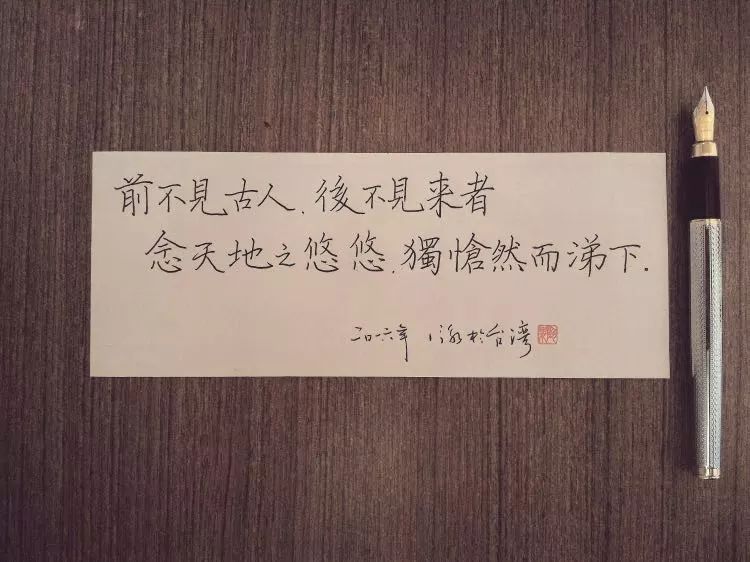 前不見古人.後不見来者
念天地之悠悠.獨愴然而涕下.
二〇一六年 泳於台湾